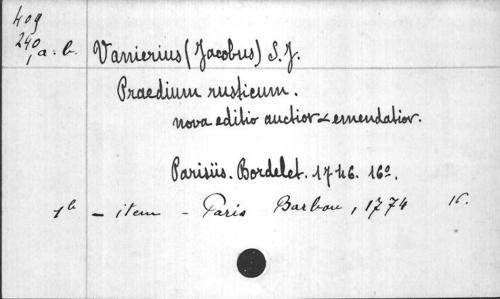 409
240,a.b.
1
Vanierius (Jacobus) S.J.
Praedium rusticum.
nova editio auctior & emendatior.
Parisiis. Bordelet. 1746. 16º.
1b – item – Paris Barbou, 1774 16.